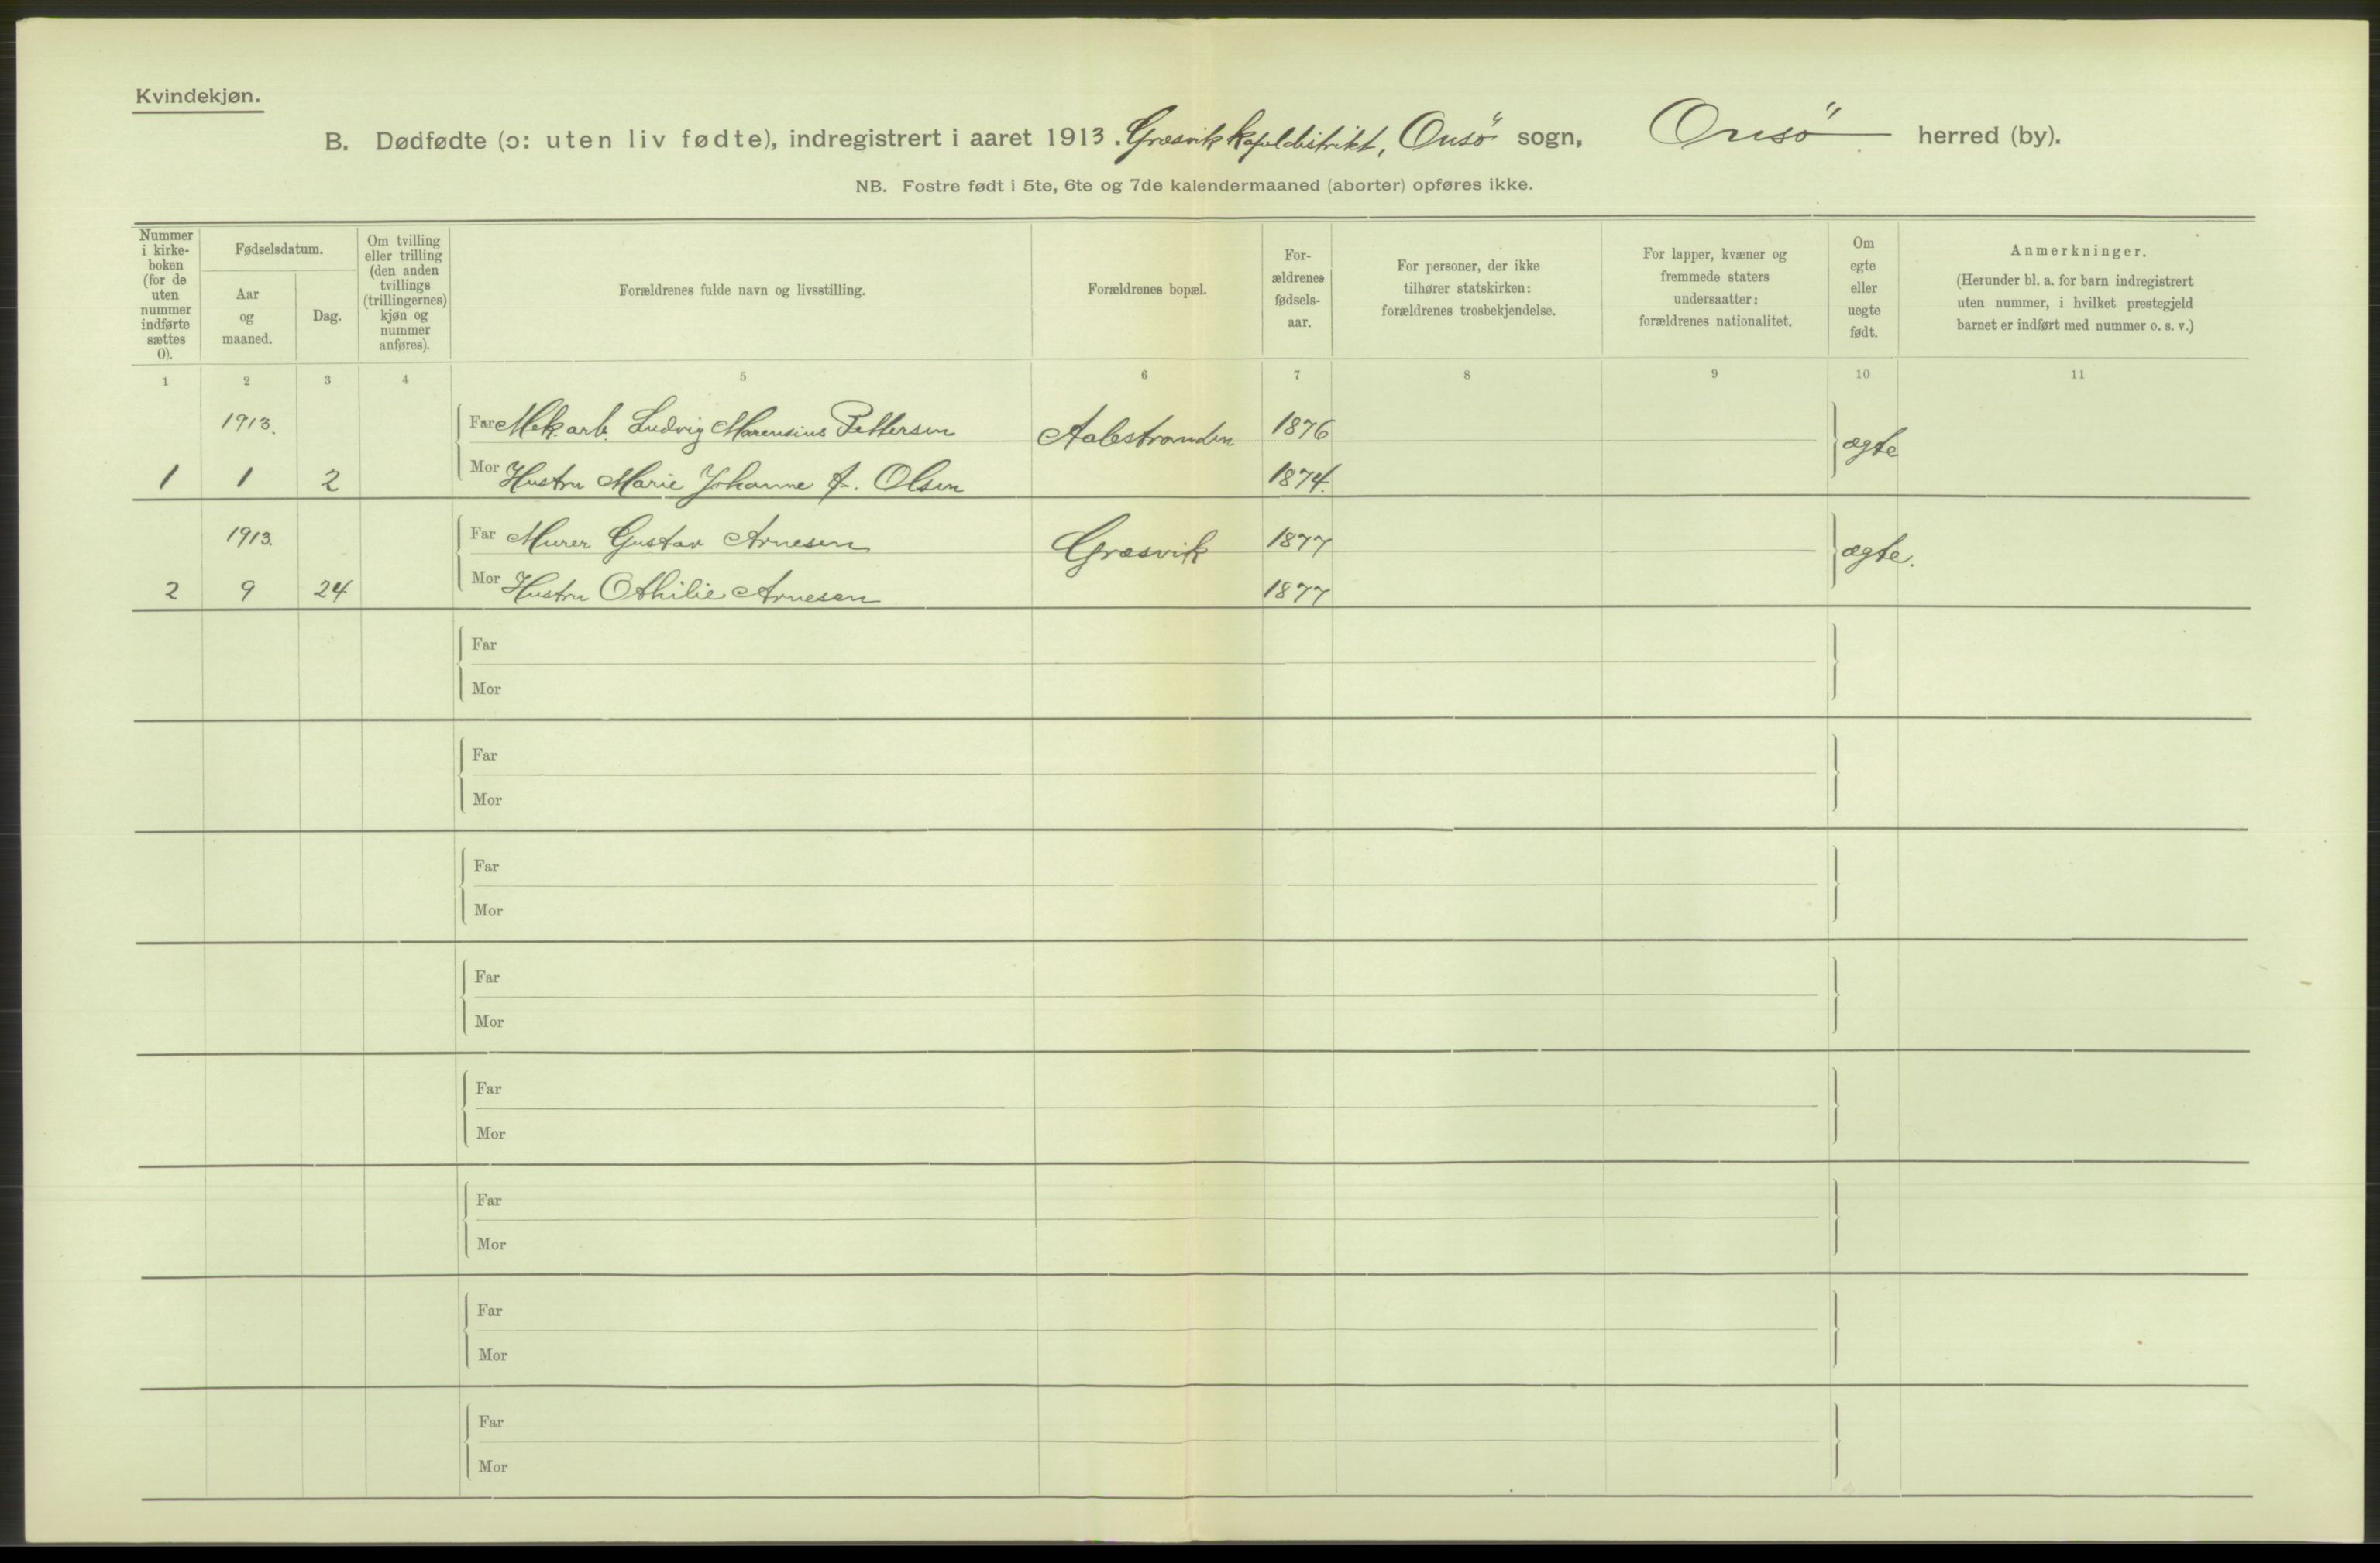 Kvindekjøn.
B. Dødfødte (ɔ: uten liv fødte), indregistrert i aaret 1913. Græsvik kapeldistrikt, Onsö sogn, Onsö herred (by).
NB. Fostre født i 5te, 6te og 7de kalendermaaned (aborter) opføres ikke.
Nummer i kirke-boken (for de uten nummer indførte sættes 0).
Fødselsdatum.
Aar og maaned.
Dag.
Om tvilling eller trilling (den anden tvillings (trillingernes) kjøn og nummer anføres).
Forældrenes fulde navn og livsstilling.
Forældrenes bopæl.
For-ældrenes fødsels-aar.
For personer, der ikke tilhører statskirken: forældrenes trosbekjendelse.
For lapper, kvæner og fremmede staters undersaatter: forældrenes nationalitet.
Om egte eller uegte født.
Anmerkninger.
(Herunder bl. a. for barn indregistrert uten nummer, i hvilket prestegjeld barnet er indført med nummer o. s. v.)
1 2 3 4 5 6 7 8 9 10 11
1913. Far Mek. arb. Ludvig Marensius Pettersen Aalestranden 1876 ægte
1 1 2 Mor Hustru Marie Johanne f. Olsen 1874.
1913. Far Murer Gustav Arnesen Græsvik 1877 ægte.
2 9 24 Mor Hustru Othilie Arnesen 1877
Far
Mor
Far
Mor
Far
Mor
Far
Mor
Far
Mor
Far
Mor
Far
Mor
Far
Mor